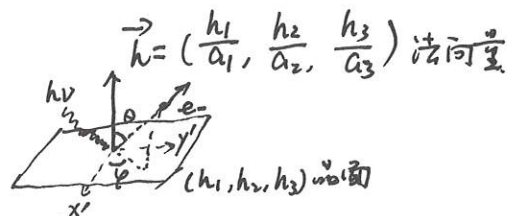 h⃗ = (h1/a1, h2/a2, h3/a3) 法向量
hν
θ
e-
y'
φ
(h1, h2, h3) 晶面
x'